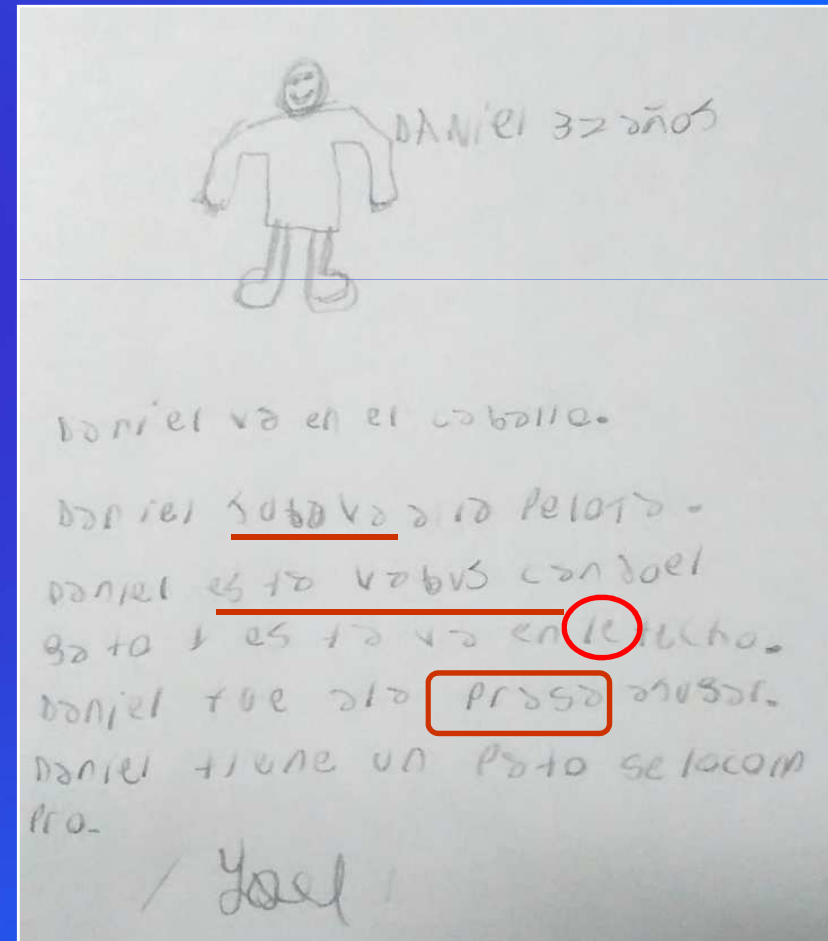 DANiel 32 años
Daniel va en el caballo.
Daniel jubava a la Pelota.
Daniel es ta vabus candoel
gato y es ta va en le techo.
Daniel fue ala prasa ajugar.
Daniel tiene un Pato se locom
pro.
Yael